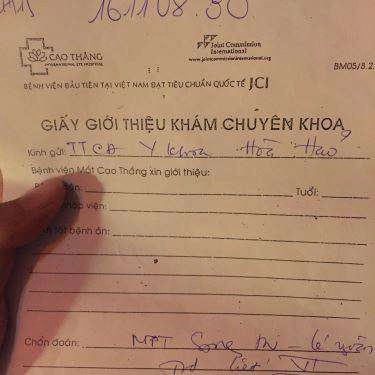 1611108.30
CAO THẮNG
INTERNATIONAL EYE HOSPITAL
Joint Commission
International
www.jointcommissioninternational.org
BM05/8.2
BỆNH VIỆN ĐẦU TIÊN TẠI VIỆT NAM ĐẠT TIÊU CHUẨN QUỐC TẾ JCI
GIẤY GIỚI THIỆU KHÁM CHUYÊN KHOA
Kính gửi: TTCĐ Y khoa Hoà Hảo
Bệnh viện Mắt Cao Thắng xin giới thiệu:
Tuổi:
tắt bệnh án:
Chẩn đoán: MPT Song thị -